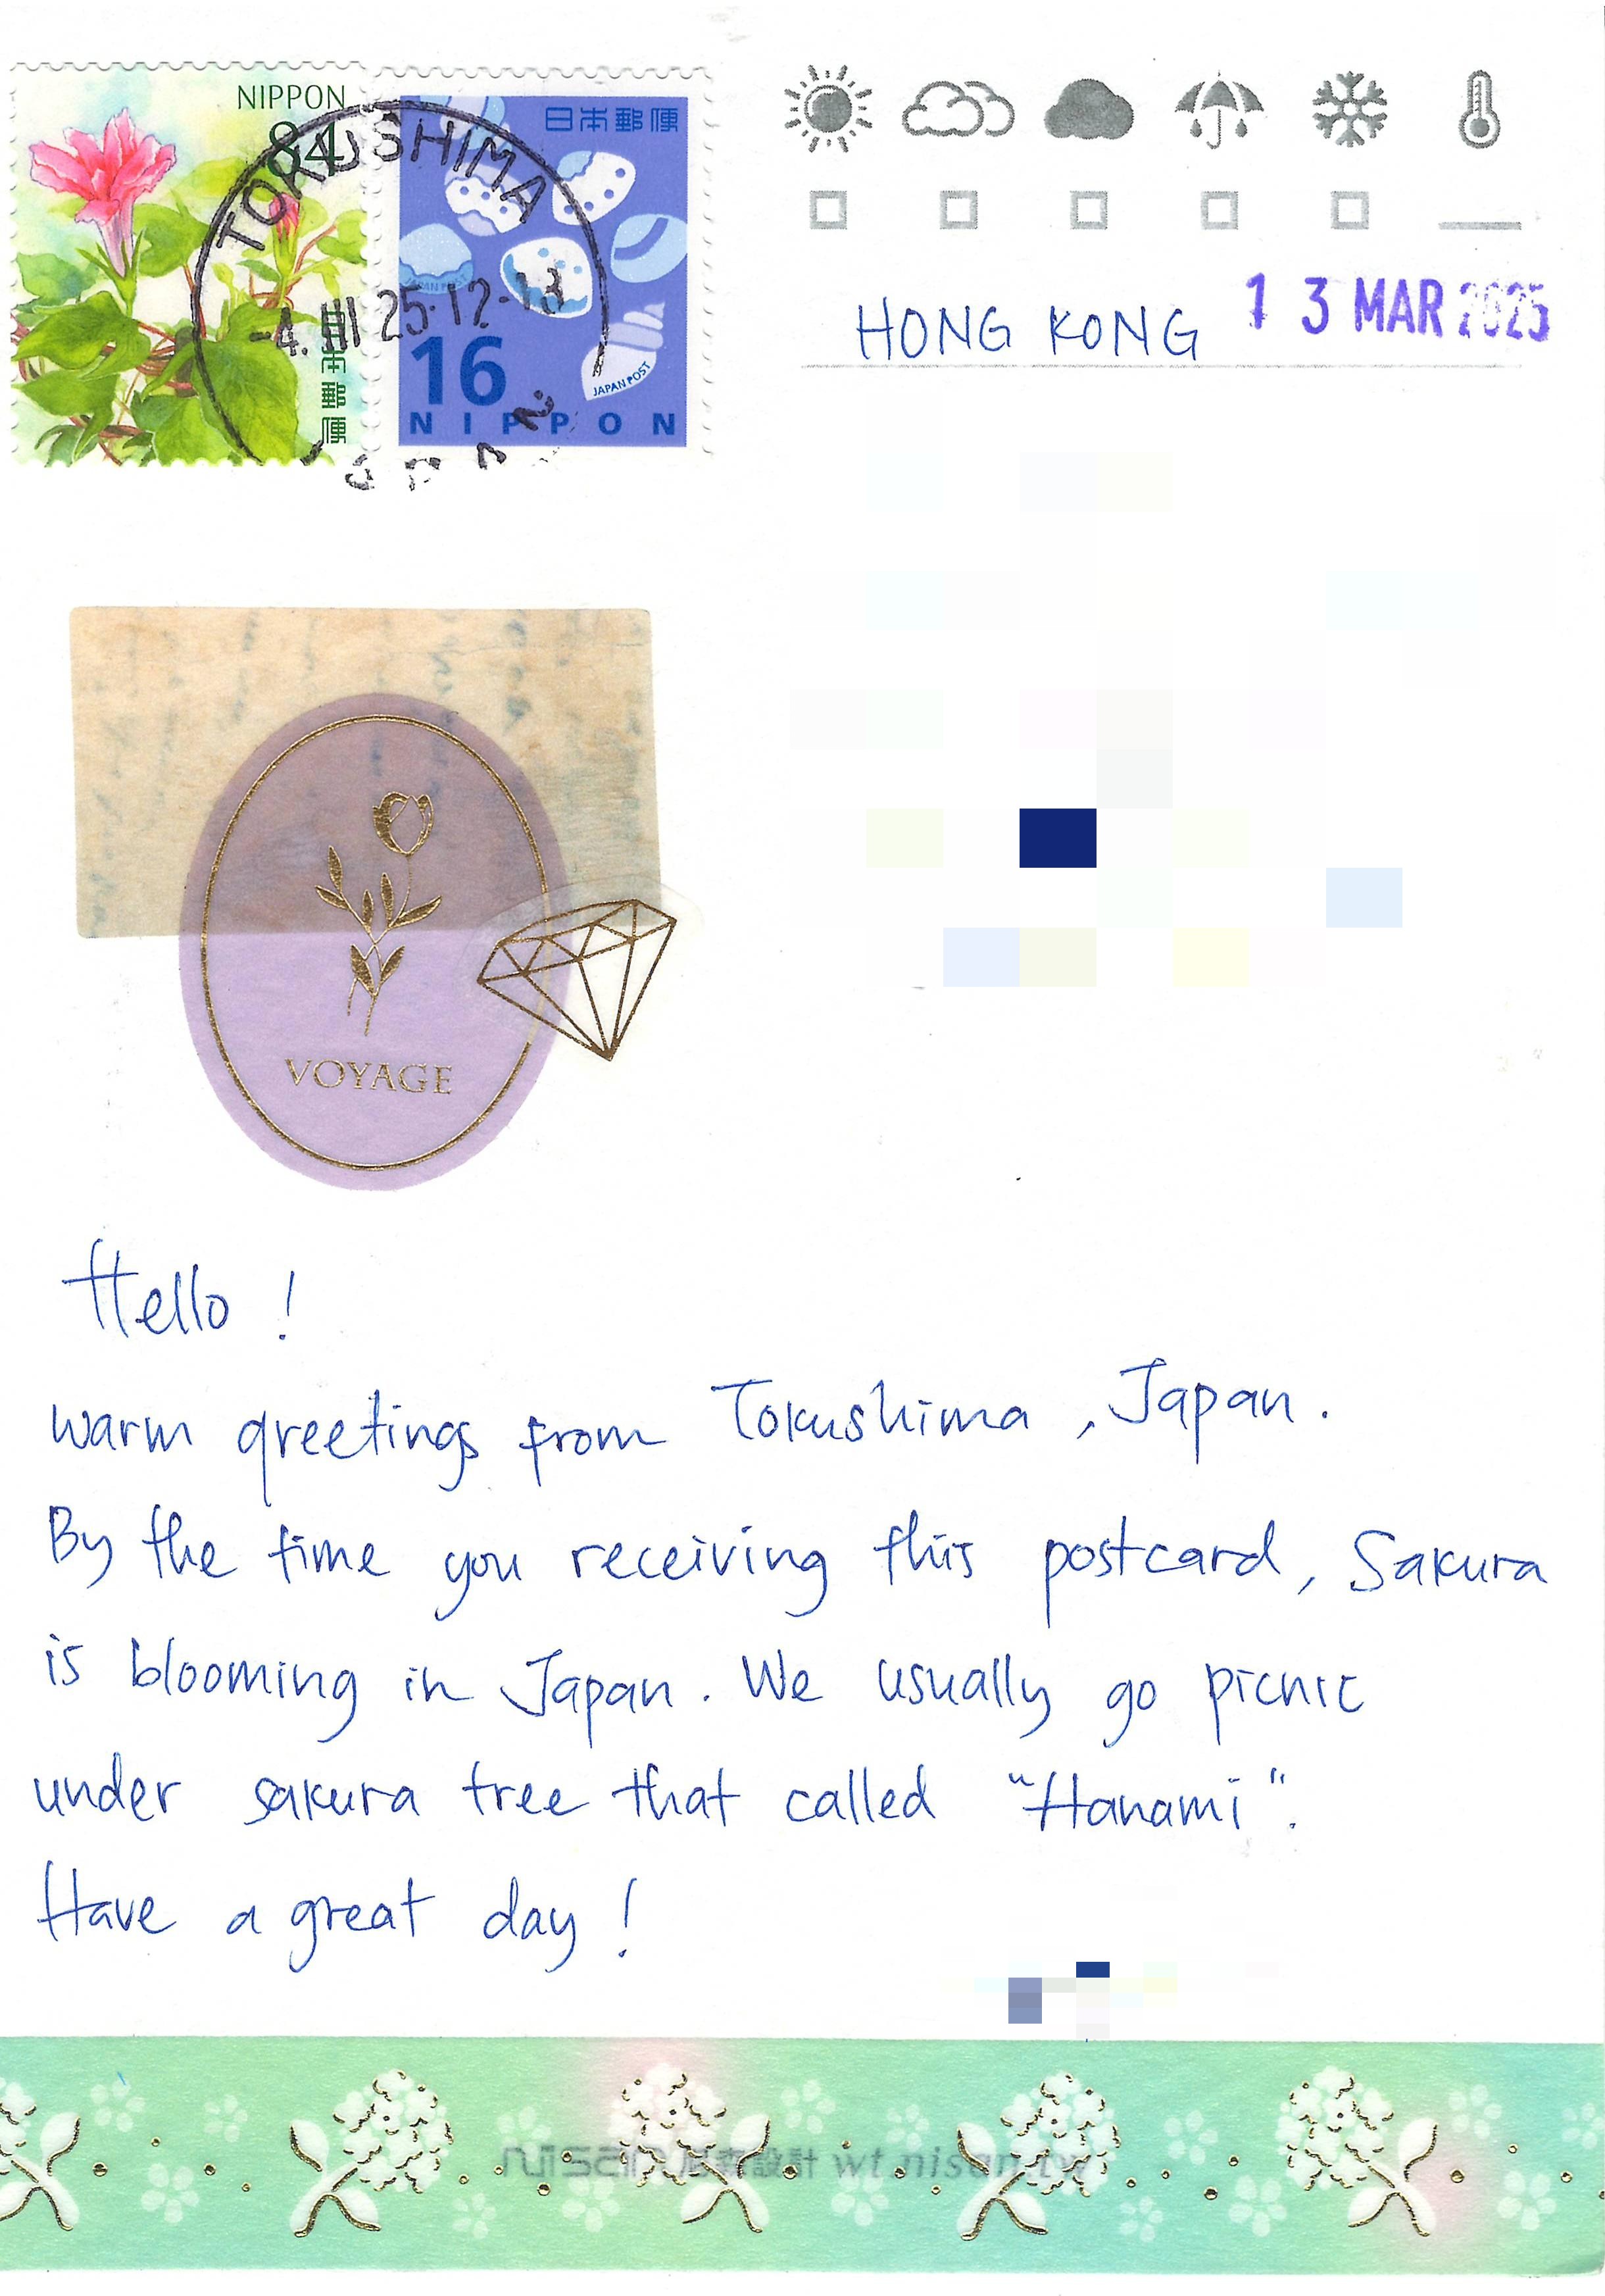 NIPPON
84
日本郵便
日本郵便
16
NIPPON
JAPAN POST
TOKUSHIMA
-4.III 25.12-13
JAPAN
HONG KONG
13 MAR 2025
VOYAGE
Hello !
warm greetings from Tokushima , Japan.
By the time you receiving this postcard, Sakura
is blooming in Japan. We usually go picnic
under sakura tree that called "Hanami".
Have a great day !
nisan 設計 wt.nisan.tw